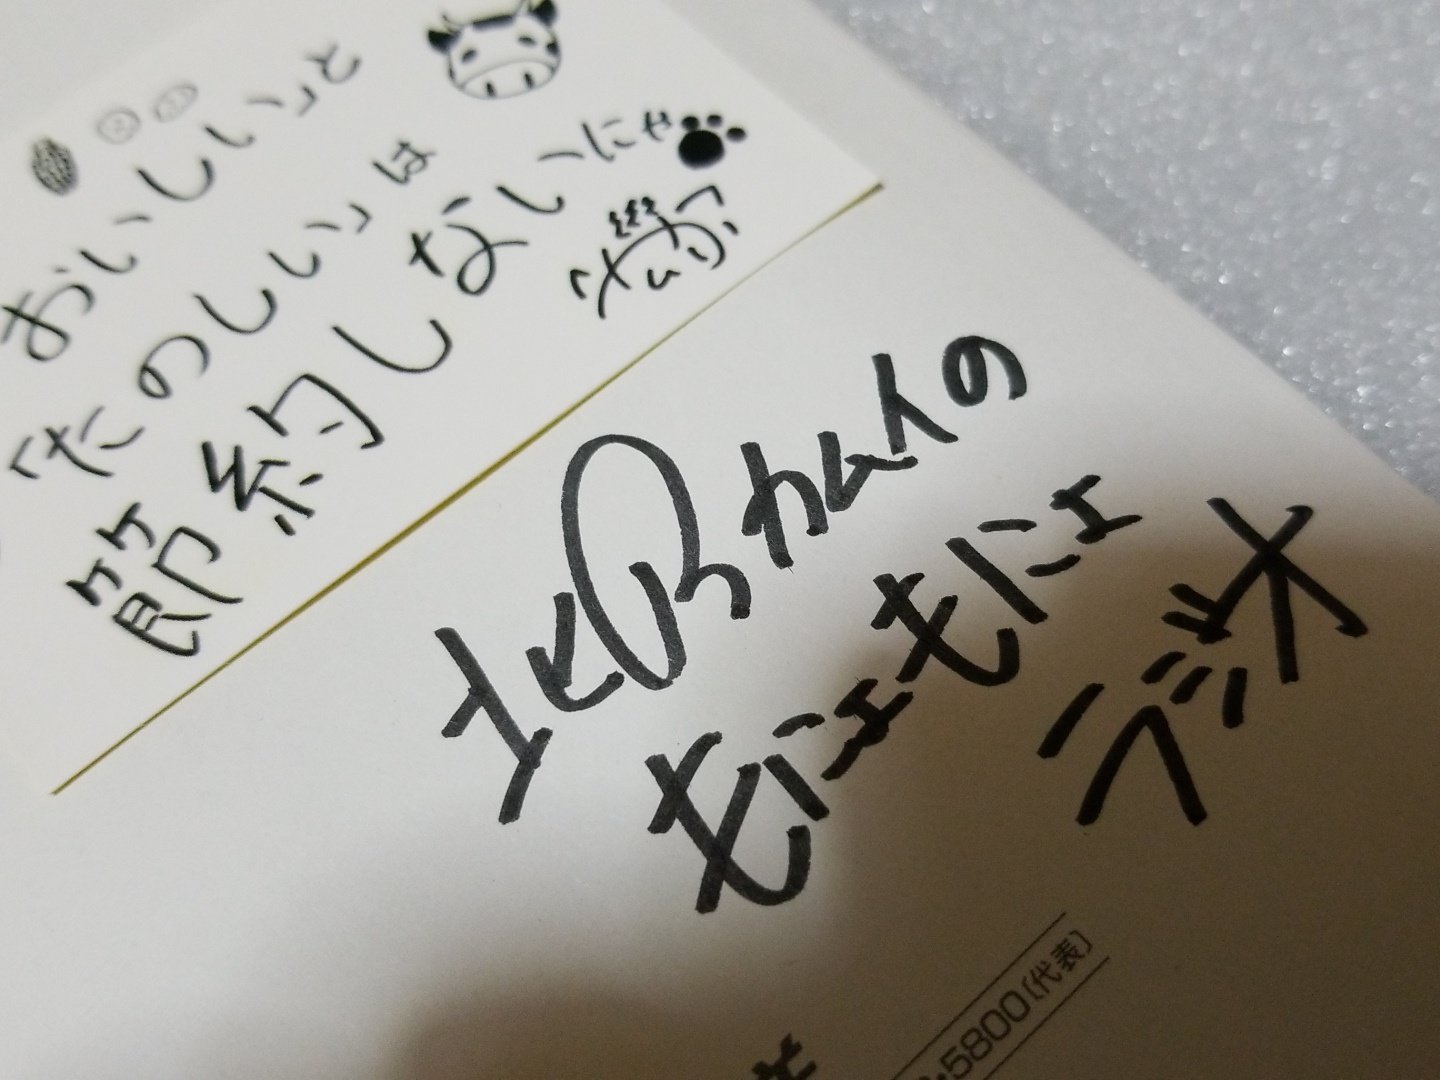 「おいしい」と
「たのしい」は
節約しないにゃ
北日カムイの
もにょもにょ
ラジオ
5800〔代表〕